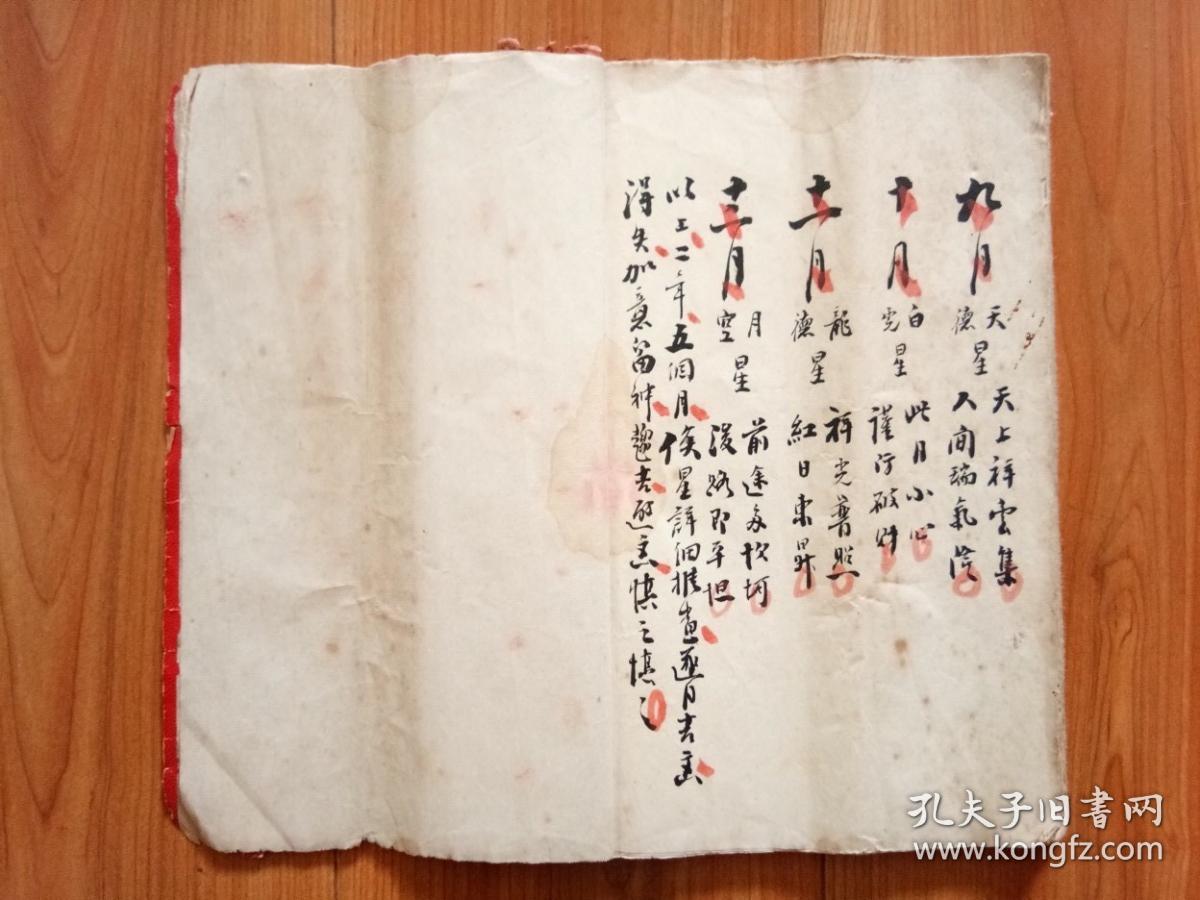 九月 天德星 天上祥雲集 人间瑞氣
十月 白虎星 此月小心 謹防破财
十一月 龍德星 祥光普照 紅日東昇
十二月 月空星 前途多坎坷 後路即平坦
以上二年五個月侯星詳细推查逐月吉凶
得失加意留神趨吉避凶慎之慎之
孔夫子旧书网
www.kongfz.com